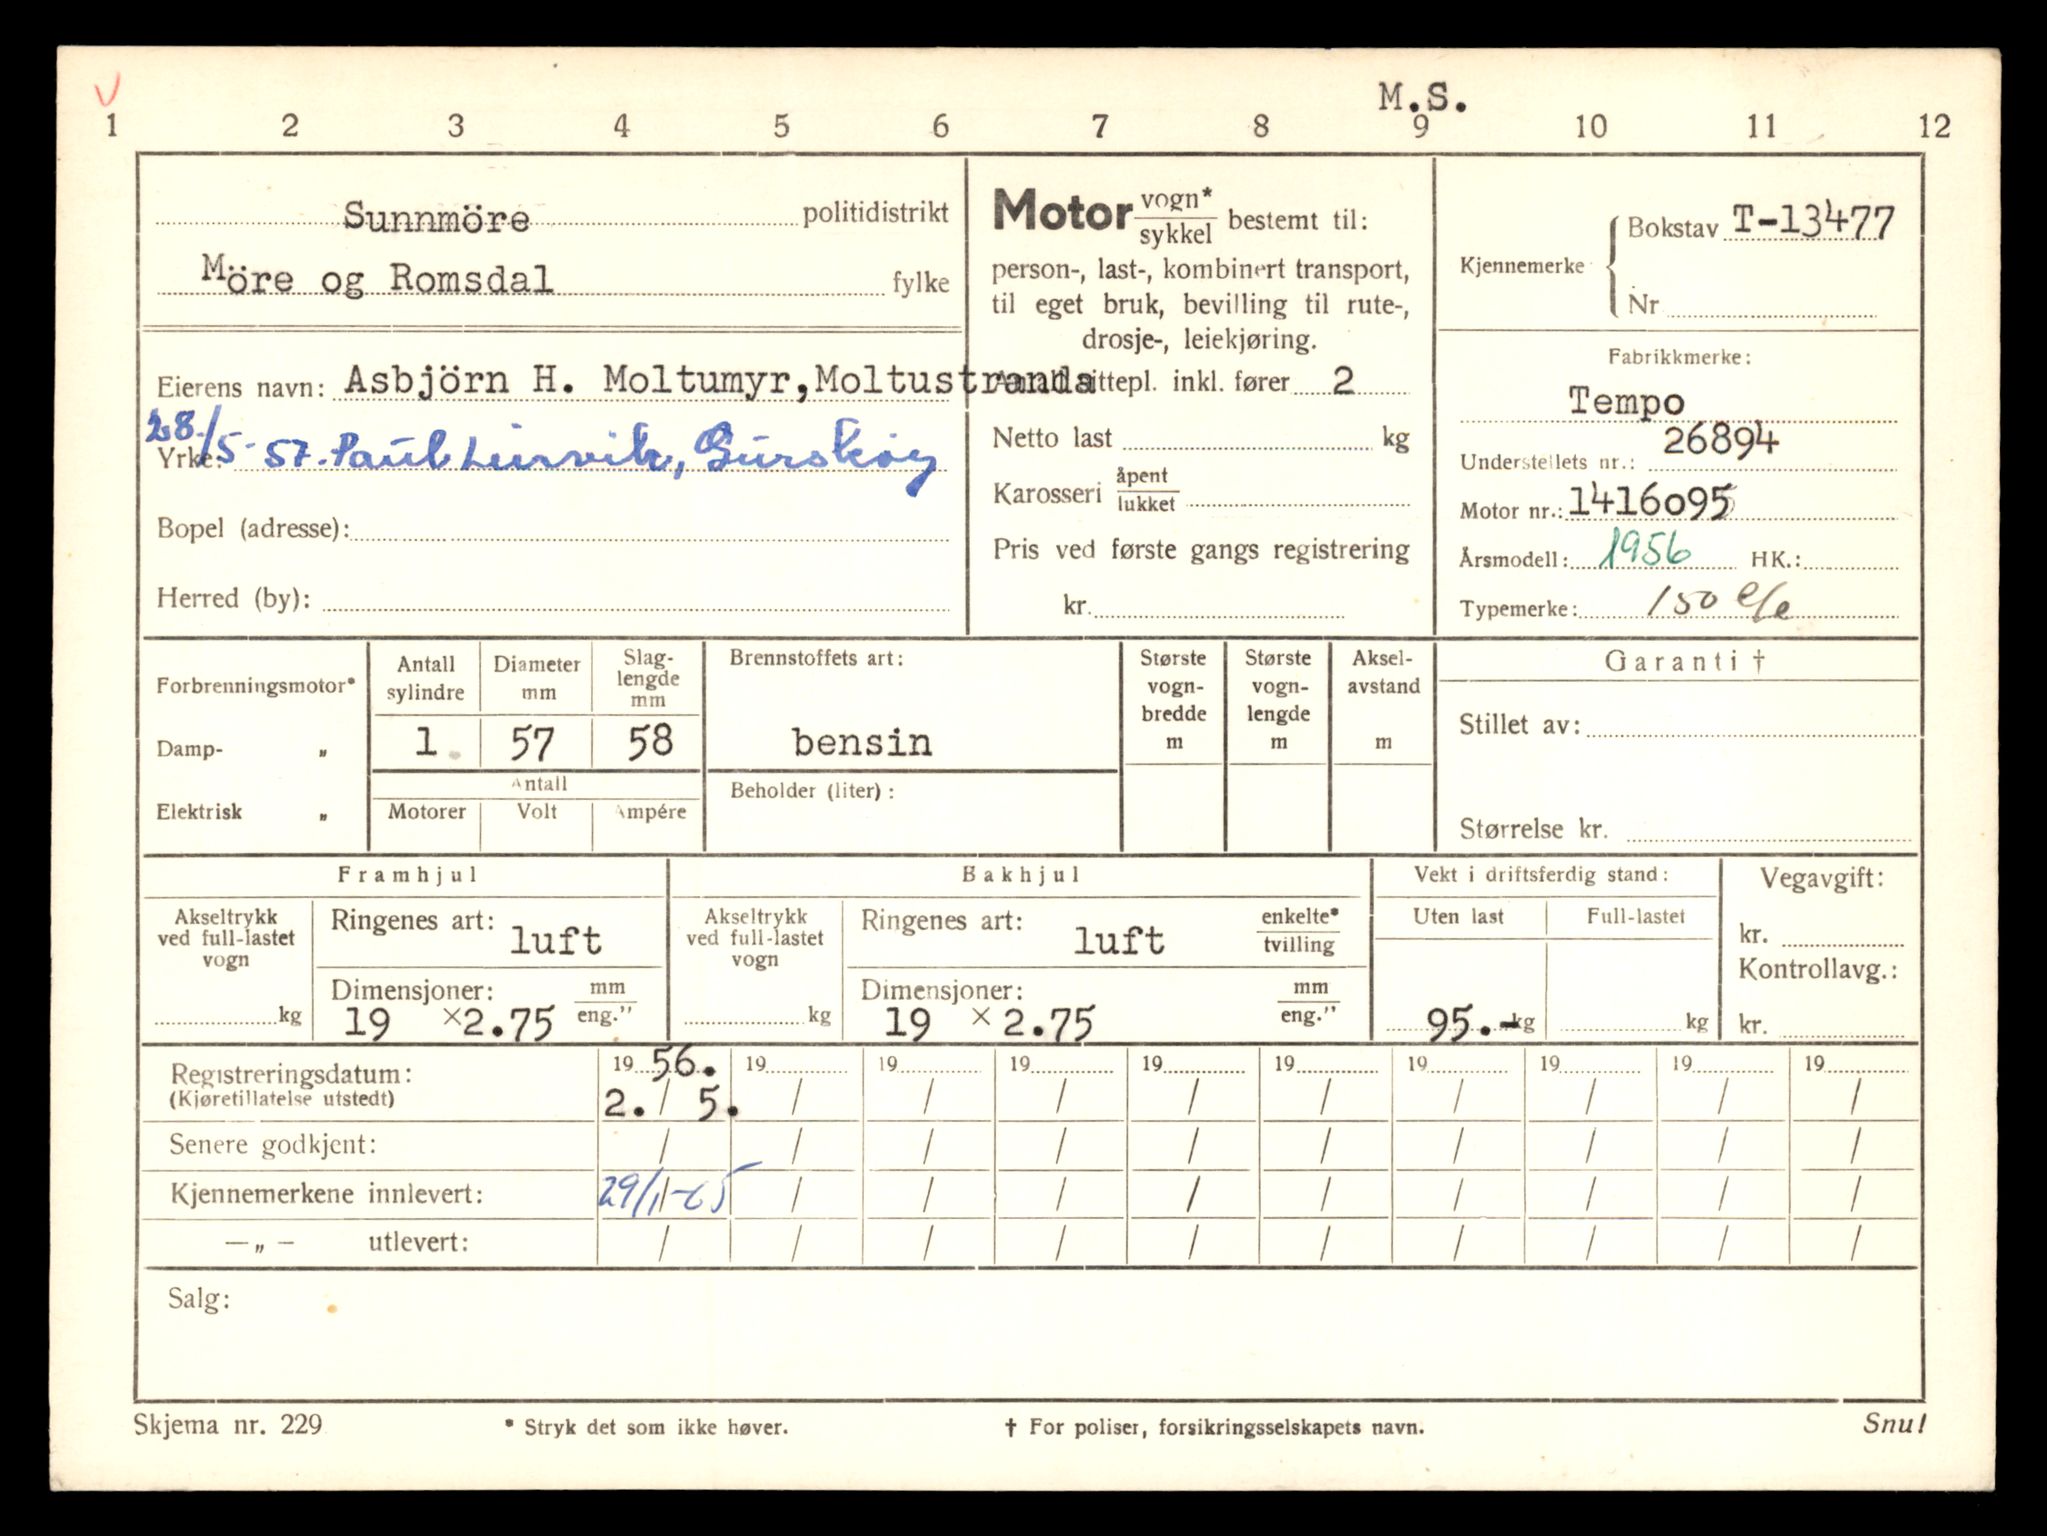 V
M.S.
1 2 3 4 5 6 7 8 9 10 11 12
Sunnmöre politidistrikt
Möre og Romsdal fylke
Eierens navn: Asbjörn H. Moltumyr, Moltustranda
28/5-57. Paul Leirvik, Gurskøy
Yrke:
Bopel (adresse):
Herred (by):
Motor vogn* sykkel bestemt til:
person-, last-, kombinert transport,
til eget bruk, bevilling til rute-,
drosje-, leiekjøring.
Antall sittepl. inkl. fører 2
Netto last kg
Karosseri åpent lukket
Pris ved første gangs registrering
kr.
Kjennemerke
Bokstav T-13477
Nr
Fabrikkmerke:
Tempo
Understellets nr.: 26894
Motor nr.: 1416o95
Årsmodell: 1956 HK.:
Typemerke: 150 c/c
Forbrenningsmotor*
Damp- „
Elektrisk „
Antall sylindre
Diameter mm
Slag-lengde mm
1 57 58
Antall
Motorer Volt Ampére
Brennstoffets art:
bensin
Beholder (liter):
Største vogn-bredde m
Største vogn-lengde m
Aksel-avstand m
Garanti †
Stillet av:
Størrelse kr.
Framhjul
Akseltrykk
ved full-lastet
vogn
kg
Ringenes art: luft
Dimensjoner: mm eng."
19 × 2.75
Bakhjul
Akseltrykk
ved full-lastet
vogn
kg
Ringenes art: luft enkelte* tvilling
Dimensjoner: mm eng."
19 × 2.75
Vekt i driftsferdig stand:
Uten last Full-lastet
95.- kg kg
Vegavgift:
kr.
Kontrollavg.:
kr.
Registreringsdatum: 19 56. 19 19 19 19 19 19 19 19 19
(Kjøretillatelse utstedt) 2. / 5. / / / / / / / / /
Senere godkjent: / / / / / / / / / /
Kjennemerkene innlevert: 29/1-65 / / / / / / / / /
— „ — utlevert: / / / / / / / / / /
Salg:
Skjema nr. 229 * Stryk det som ikke høver. † For poliser, forsikringsselskapets navn. Snu!